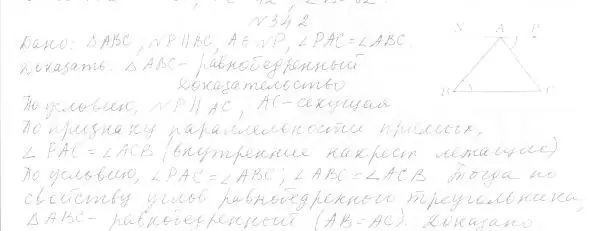 № 342
Дано: △ABC, NP ∥ BC, A ∈ NP, ∠PAC = ∠ABC.
Доказать: △ABC – равнобедренный
Доказательство
N A P
B C
По условию, NP ∥ AC, AC – секущая
По признаку параллельности прямых,
∠PAC = ∠ACB (внутренние накрест лежащие)
По условию, ∠PAC = ∠ABC; ∠ABC = ∠ACB тогда по
свойству углов равнобедренного треугольника,
△ABC – равнобедренный (AB = AC). Доказано